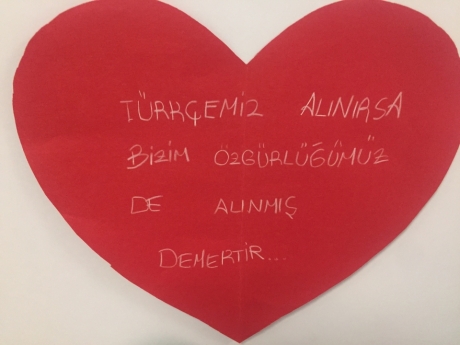 TÜRKÇEMİZ ALINIRSA
BİZİM ÖZGÜRLÜĞÜMÜZ
DE ALINMIŞ
DEMEKTİR...